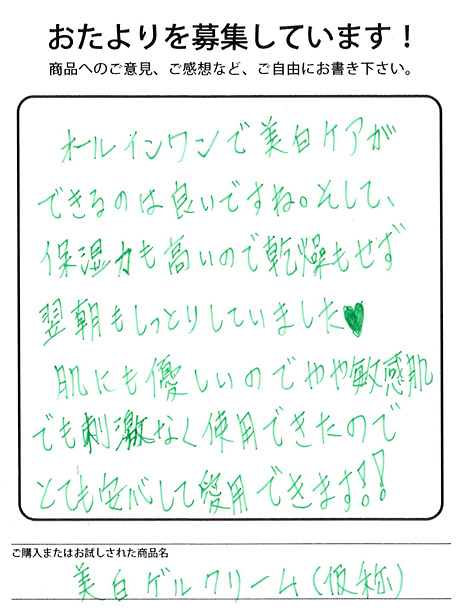 おたよりを募集しています！
商品へのご意見、ご感想など、ご自由にお書き下さい。
オールインワンで美白ケアが
できるのは良いですね。そして、
保湿力も高いので乾燥もせず
翌朝もしっとりしていました♥
肌にも優しいのでやや敏感肌
でも刺激なく使用できたので
とても安心して愛用できます!!
ご購入またはお試しされた商品名
美白ゲルクリーム(仮称)